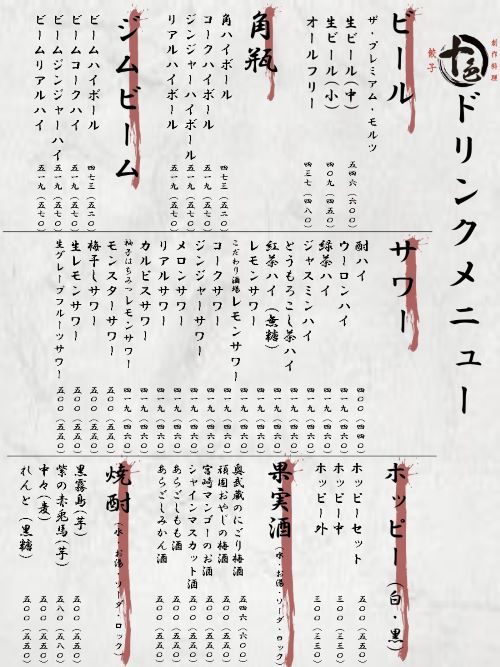 創作料理
餃子
ドリンクメニュー
ビール
ザ・プレミアム・モルツ
生ビール(中) 五四六(六〇〇)
生ビール(小) 四〇九(四五〇)
オールフリー 四三七(四八〇)
角瓶
角ハイボール 四七三(五二〇)
コークハイボール 五一九(五七〇)
ジンジャーハイボール 五一九(五七〇)
リアルハイボール 五一九(五七〇)
ジムビーム
ビームハイボール 四七三(五二〇)
ビームコークハイ 五一九(五七〇)
ビームジンジャーハイ 五一九(五七〇)
ビームリアルハイ 五一九(五七〇)
サワー
酎ハイ 四〇〇(四四〇)
ウーロンハイ 四一九(四六〇)
緑茶ハイ 四一九(四六〇)
ジャスミンハイ 四一九(四六〇)
とうもろこし茶ハイ 四一九(四六〇)
紅茶ハイ(無糖) 四一九(四六〇)
レモンサワー 四一九(四六〇)
こだわり酒場レモンサワー 四一九(四六〇)
コークサワー 四一九(四六〇)
ジンジャーサワー 四一九(四六〇)
メロンサワー 四一九(四六〇)
リアルサワー 四一九(四六〇)
カルピスサワー 四一九(四六〇)
柚子はちみつレモンサワー 四一九(四六〇)
モンスターサワー 五〇〇(五五〇)
梅干しサワー 五〇〇(五五〇)
生レモンサワー 五〇〇(五五〇)
生グレープフルーツサワー 五〇〇(五五〇)
ホッピー(白・黒)
ホッピーセット 五〇〇(五五〇)
ホッピー中 三〇〇(三三〇)
ホッピー外 三〇〇(三三〇)
果実酒(水・お湯・ソーダ・ロック)
奥武蔵のにごり梅酒 五四六(六〇〇)
頑固おやじの梅酒 五〇〇(五五〇)
宮崎マンゴーのお酒 五〇〇(五五〇)
シャインマスカット酒 五〇〇(五五〇)
あらごしもも酒 五〇〇(五五〇)
あらごしみかん酒 五〇〇(五五〇)
焼酎(水・お湯・ソーダ・ロック)
黒霧島(芋) 五〇〇(五五〇)
紫の赤兎馬(芋) 五八〇(六三八)
中々(麦) 五〇〇(五五〇)
れんと(黒糖) 五〇〇(五五〇)